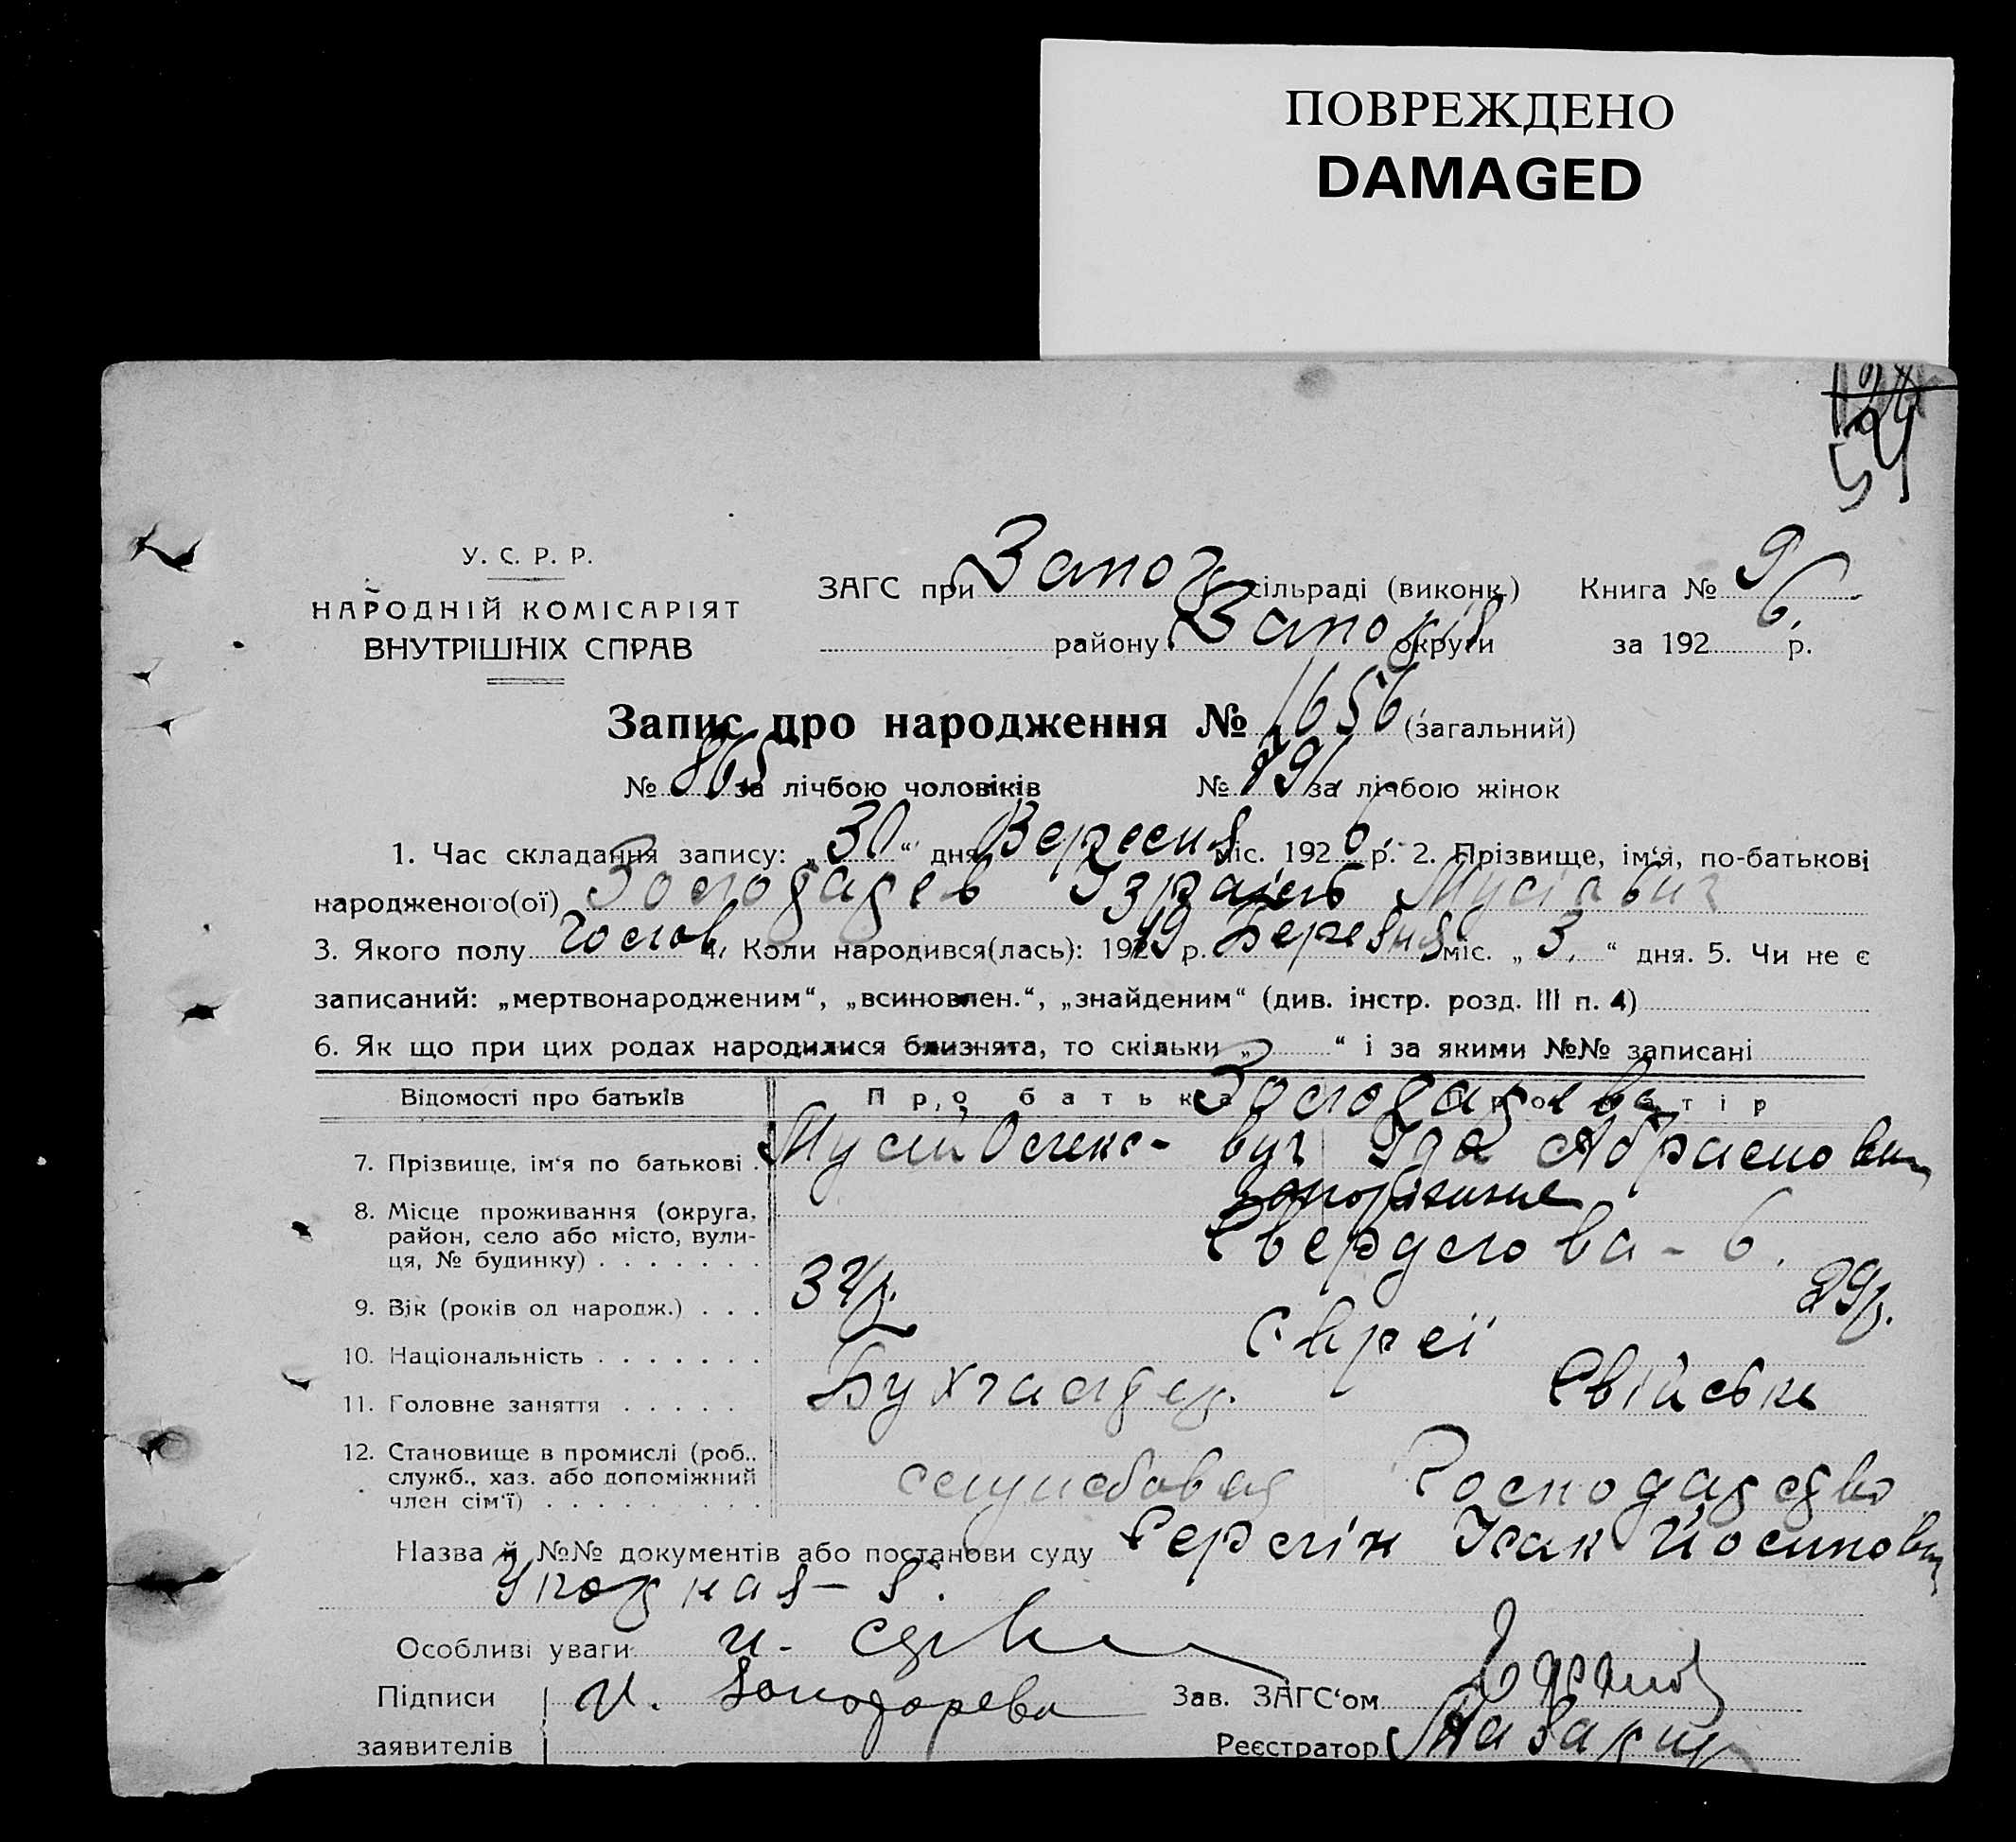 ПОВРЕЖДЕНО
DAMAGED
54
У. С. Р. Р.
НАРОДНІЙ КОМІСАРІЯТ
ВНУТРІШНІХ СПРАВ
ЗАГС при Запоріж сільраді (виконк.) Книга № 9
району Запоріж округи за 1926 р.
Запис про народження № 1656 (загальний)
№ 865 за лічбою чоловіків № 791 за лічбою жінок
1. Час складання запису: „30“ дня Вересня міс. 1926 р. 2. Прізвище, ім‘я, по-батькові
народженого(ої) Золодарев Ізраїль Мусієвич
3. Якого полу Чолов. 4. Коли народився(лась): 1919 р. Березня міс. „3“ дня. 5. Чи не є
записаний: „мертвонародженим“, „всиновлен.“, „знайденим“ (див. інстр. розд. III п. 4)
6. Як що при цих родах народилися близнята, то скільки „ “ і за якими №№ записані
Відомості про батьків Про батька Про матір
Золодареви
7. Прізвище, ім‘я по батькові . Мусій Олекс-вич Іда Абрамовна
8. Місце проживання (округа, район, село або місто, вулиця, № будинку) . . . . . . . Запоріжжя
Свердлова - 6.
9. Вік (років од народж.) . . . 32 р. 29 р.
10. Національність . . . . . . . Євреї
11. Головне заняття . . . . . Бухгалтер. Свійське
12. Становище в промислі (роб., служб., хаз. або допоміжний член сім‘ї) . . . . . . . . . службовец Господарство
Назва й №№ документів або постанови суду Серлін Ісак Йосипович
Особливі уваги
Підписи И. Золодарева Зав. ЗАГС‘ом
заявителів Реєстратор